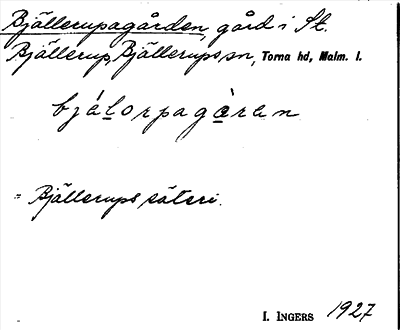 Bjällerupagården, gård i St.
Bjällerup, Bjällerups sn, Torna hd, Malm. l.
bjǽlorpagàren
= Bjällerups säteri.
I. INGERS 1927